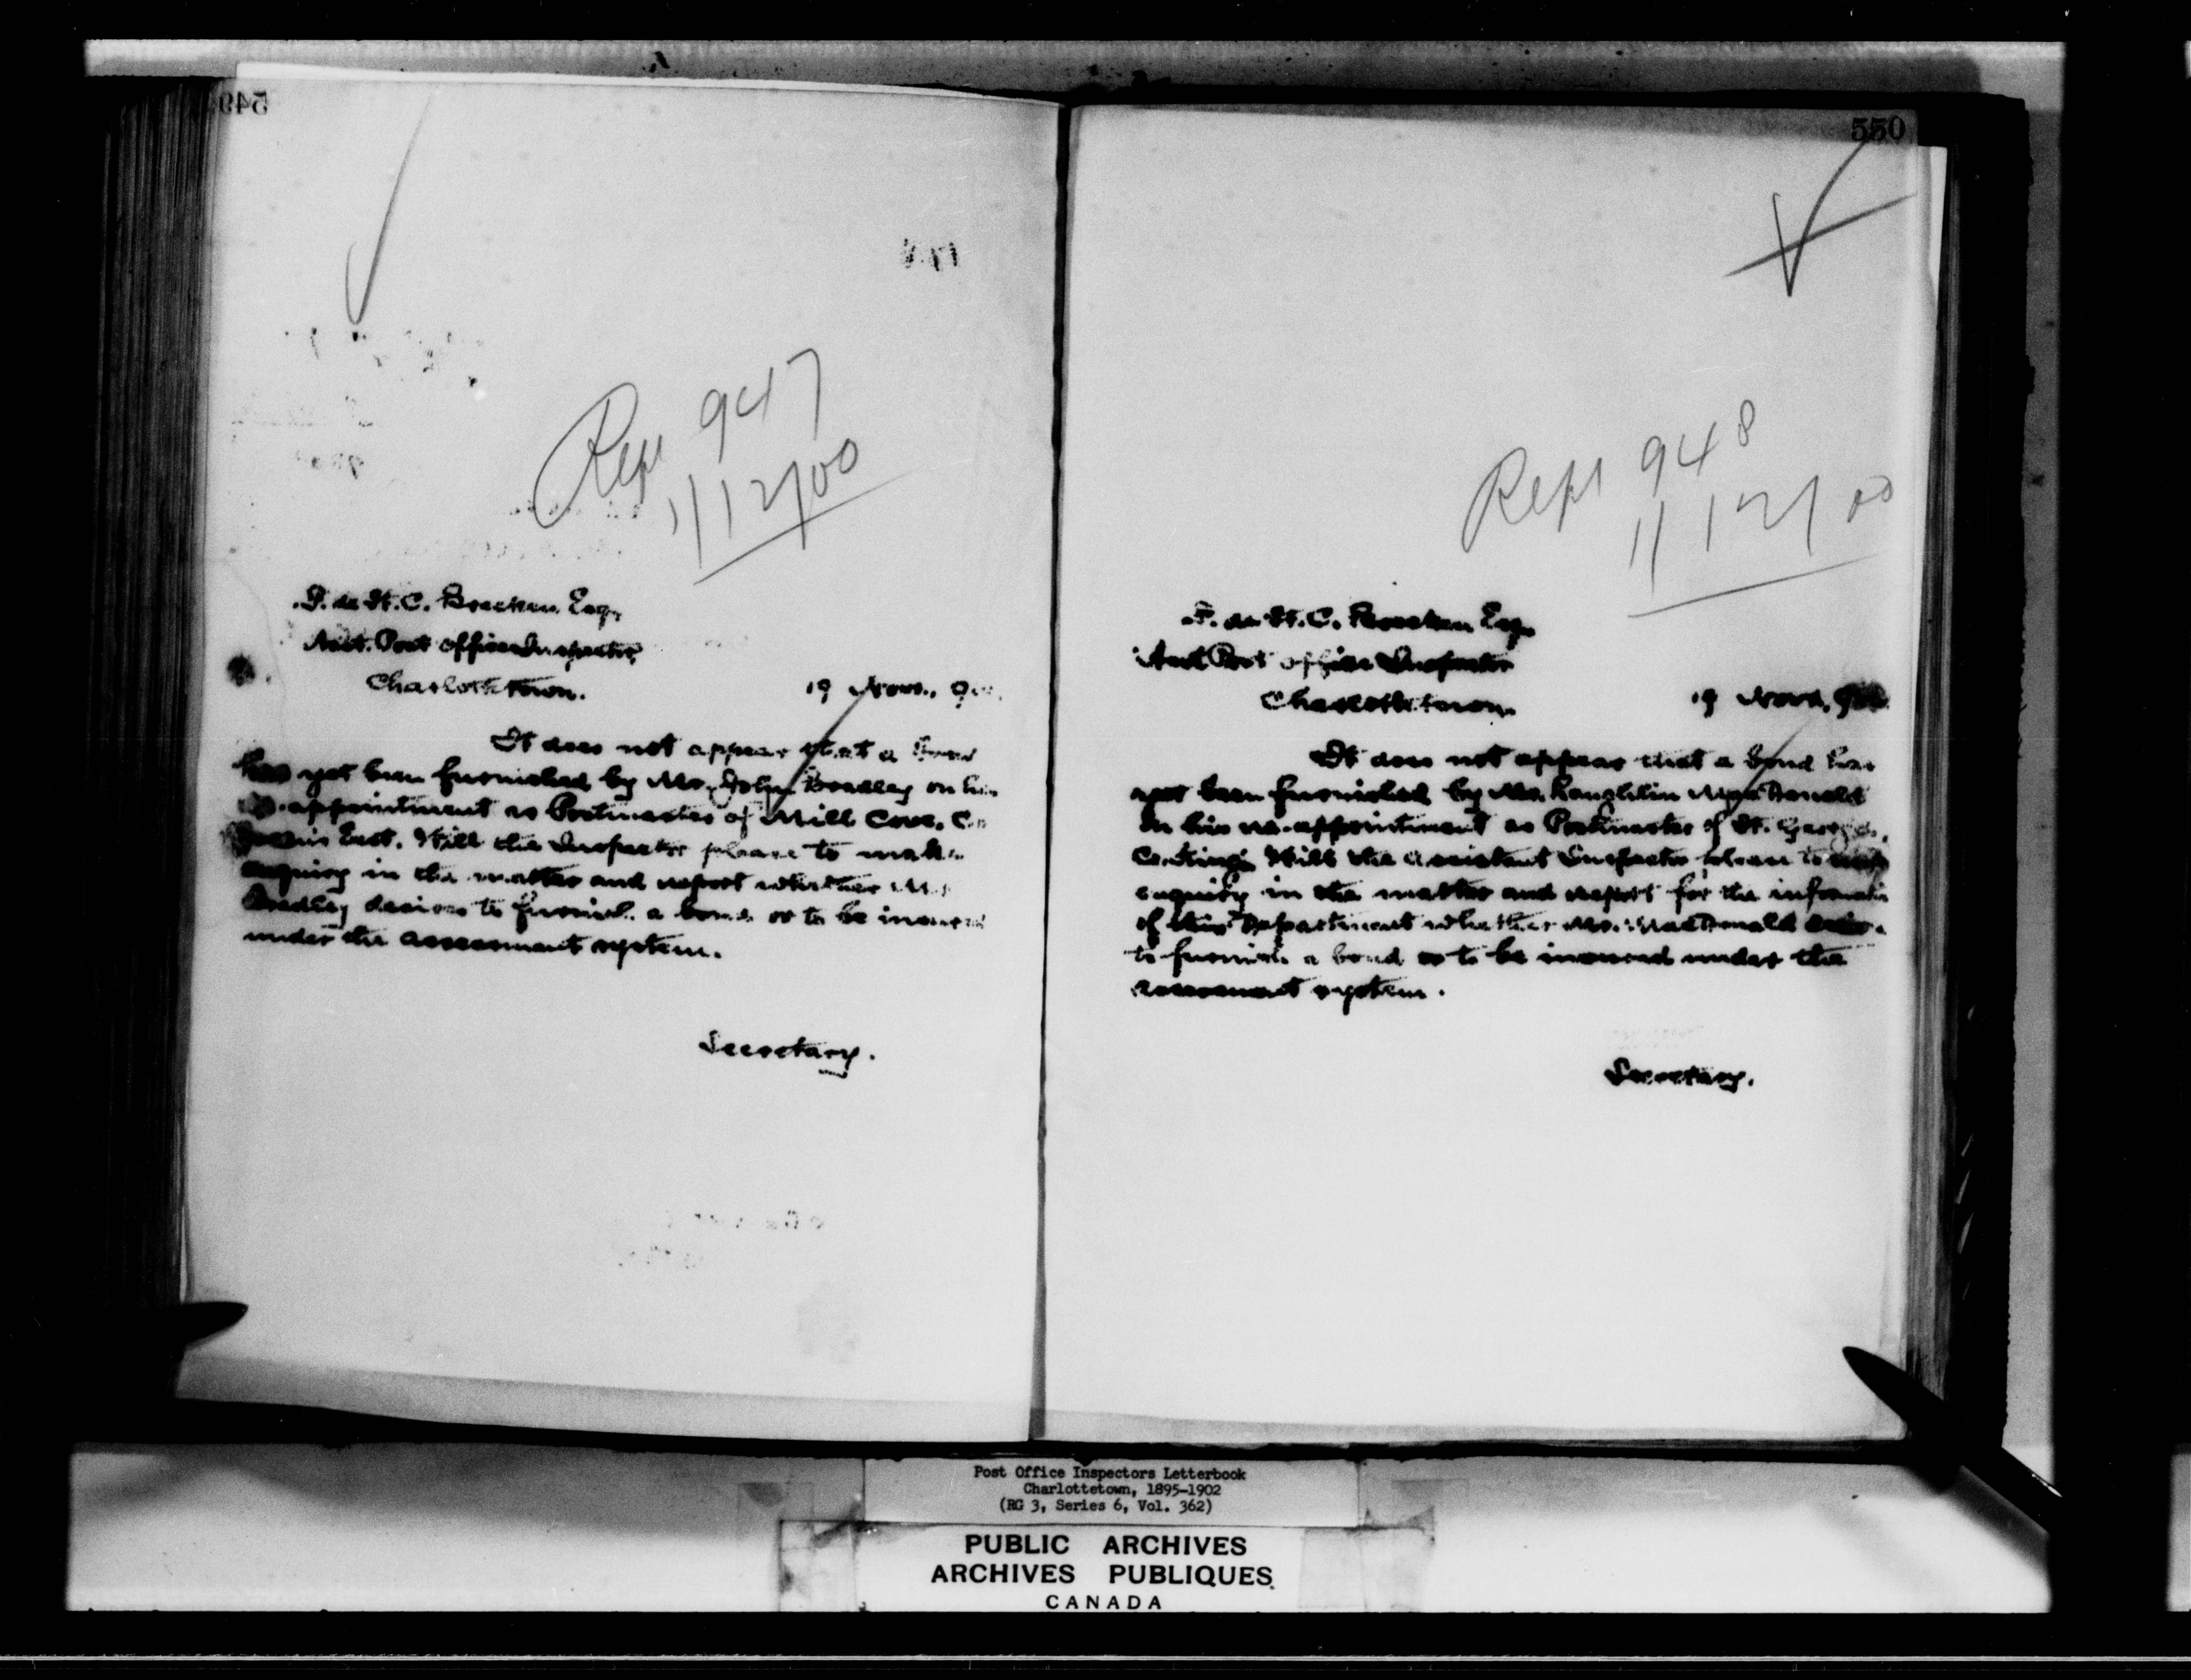 549
Rept 947
1/12/00
F. de St. C. Brecken Esq.
Asst. Post Office Inspector,
Charlottetown.
19 Nov., 900.
It does not appear that a bond
has yet been furnished by Mr. John Bradley on his
re-appointment as Postmaster of Mill Cove, Co.
Queens East. Will the Inspector please to make
enquiry in the matter and report whether Mr.
Bradley desires to furnish a bond or to be insured
under the assessment system.
Secretary.
550
Rept 948
1/12/00
F. de St. C. Brecken Esq.
Asst Post Office Inspector
Charlottetown.
19 Nov., 900
It does not appear that a bond has
yet been furnished by Mr. Laughlin MacDonald
on his re-appointment as Postmaster of St. Georges,
Co. Kings. Will the Assistant Inspector please to make
enquiry in the matter and report for the information
of this Department whether Mr. MacDonald desires
to furnish a bond or to be insured under the
assessment system.
Secretary.
Post Office Inspectors Letterbook
Charlottetown, 1895-1902
(RG 3, Series 6, Vol. 362)
PUBLIC ARCHIVES
ARCHIVES PUBLIQUES
CANADA